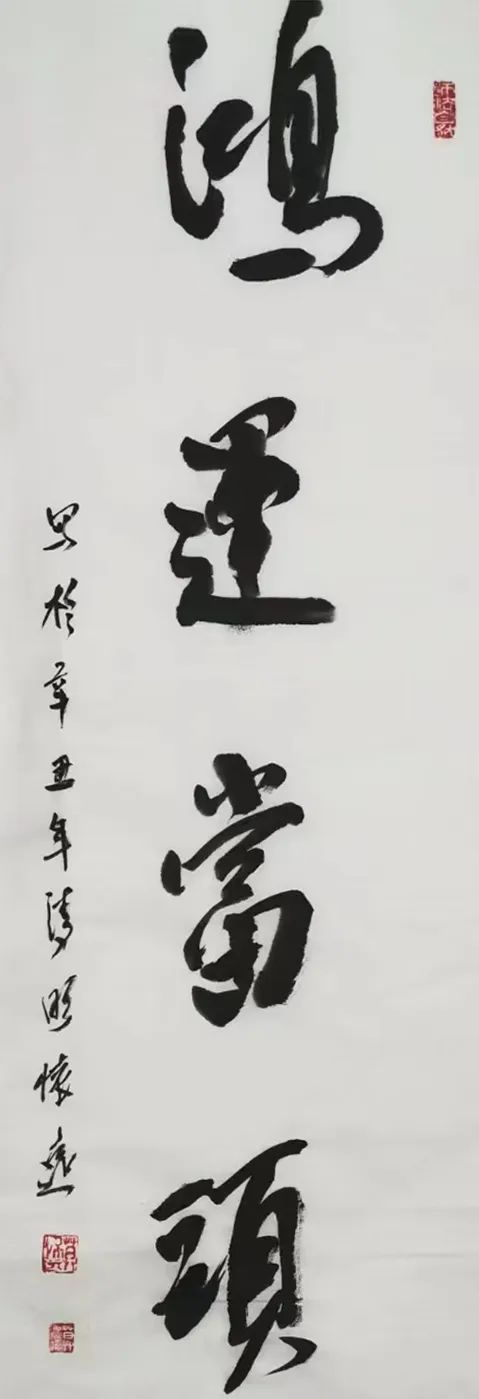 鴻運當頭
於辛丑年清明懷